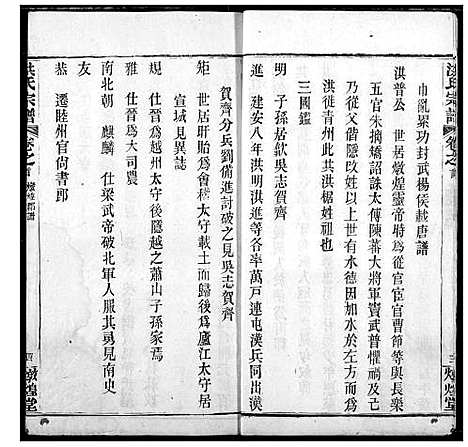 洪氏宗譜
卷之首
三
燉煌堂
巾亂累功封武楊侯載唐譜
淇普公 世居燉煌靈帝時爲從官宦官曹節等與長樂
五官朱摛矯詔誅太傅陳蕃大將軍竇武普懼禍及十
乃從父偕隱改姓以上世有水德因加水於共左方從
淇徙青州此共淇椐姓祖也
三國鑑
明 子孫居歙吳志賀齊
進 建安八年洪明洪進等各率萬戸連屯漢兵同出漢
賀齊分兵劉備進討破之見吳志賀齊
矩 世居盱眙爲會稽太守載土而歸後爲盧江太守居
宣城見異誌
規 仕晉爲越州太守後隱越之蕭山子孫家焉
雅 仕晉爲大司農
南北朝 麒麟 仕梁武帝破北軍人服其勇見南史
友
恭 遷陸州官尚書郎
洪氏宗譜
卷之首
燉煌郡譜
四
燉煌堂